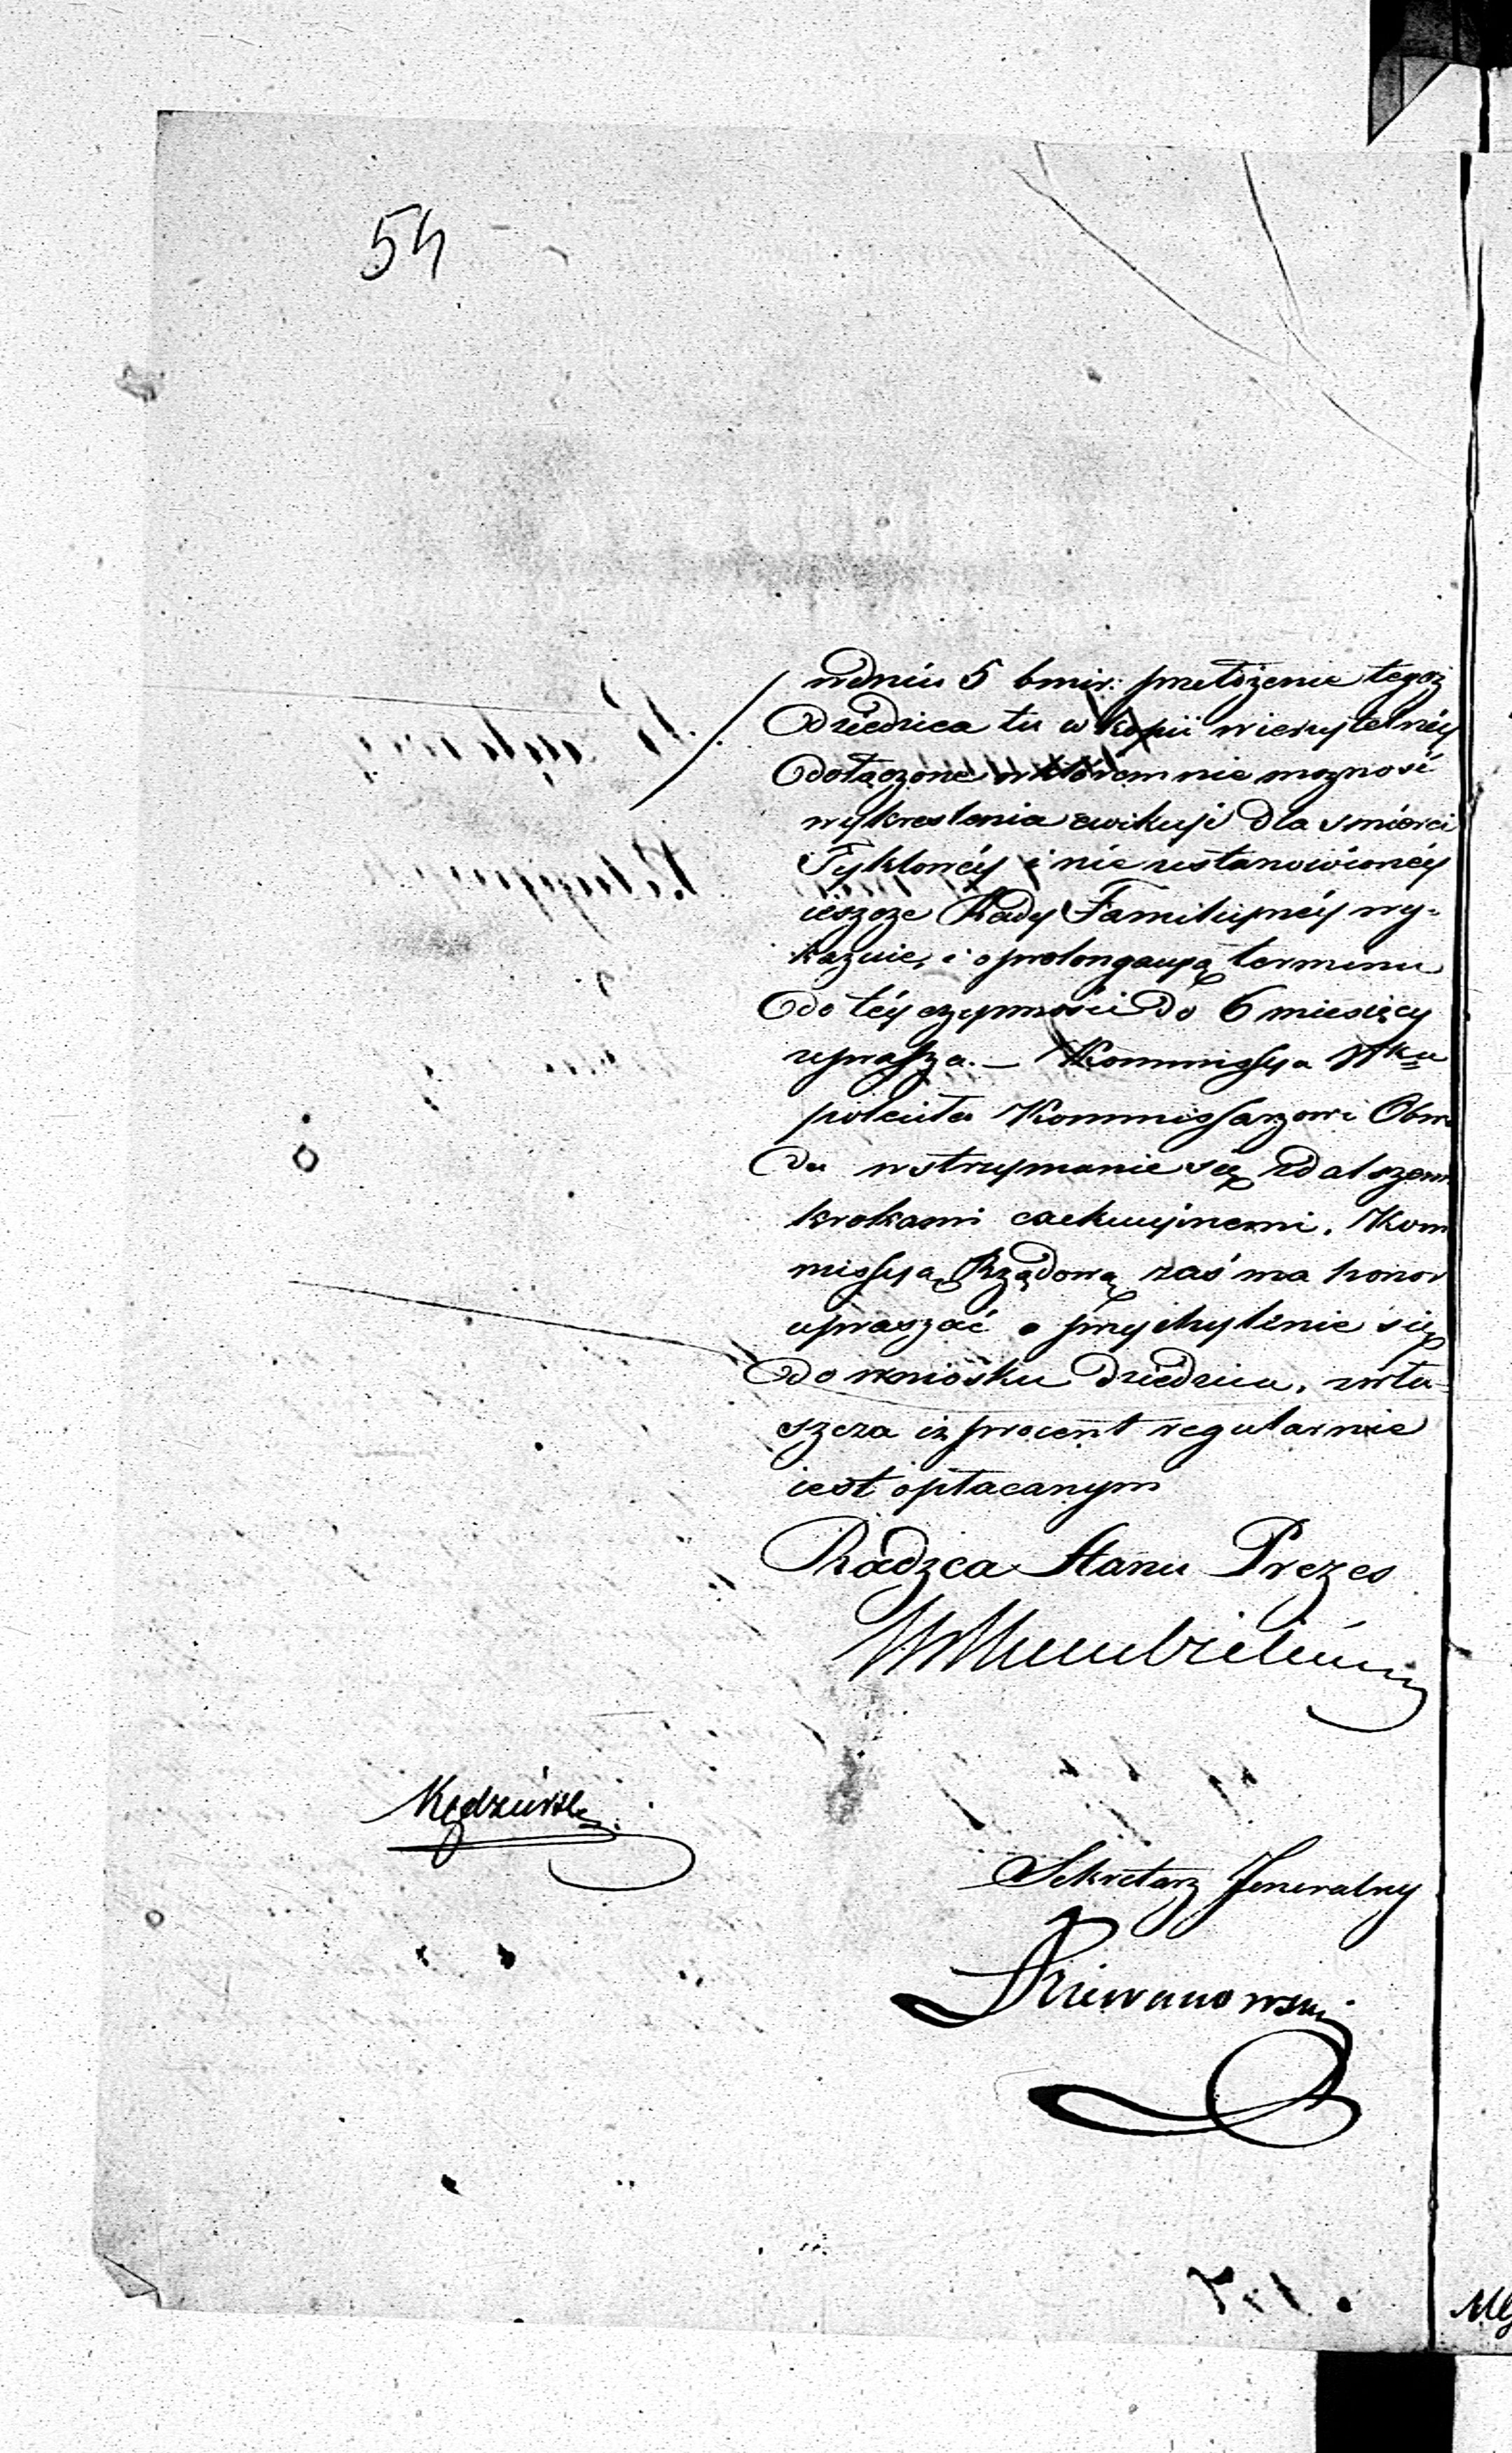 54
wdniu 5 bmir: przełożenie tegoż
Dziedzica tu w kopii wierzytelnéy
dołączone wktórem nie możność
wykreślenia ewikcyi dla śmierci
Tyklowéy i nie ustanowionéy
ieszcze Rady Familiynéy wy-
kazuie, i o prolongacyą terminu
do téy czynności do 6 miesięcy
uprasza. — Kommissya Wka
poleciła Kommissarzowi Obwo
du wstrzymanie się zdalszemi
krokami exekucyinemi. Kom
missyą Rządową zaś ma honor
upraszać o przychylenie się
do wniosku dziedzica, zwła-
szcza iż procent regularnie
iest opłacanym
Radzca Stanu Prezes
Kędzierski
Sekretarz Jeneralny